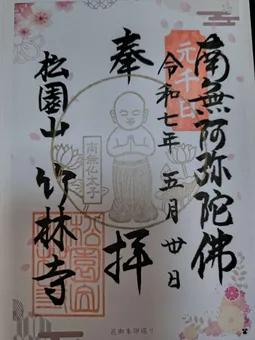 南無阿弥陀佛
元千日
令和七年 五月 廿日
奉拝
南無仏太子
松園山 竹林寺